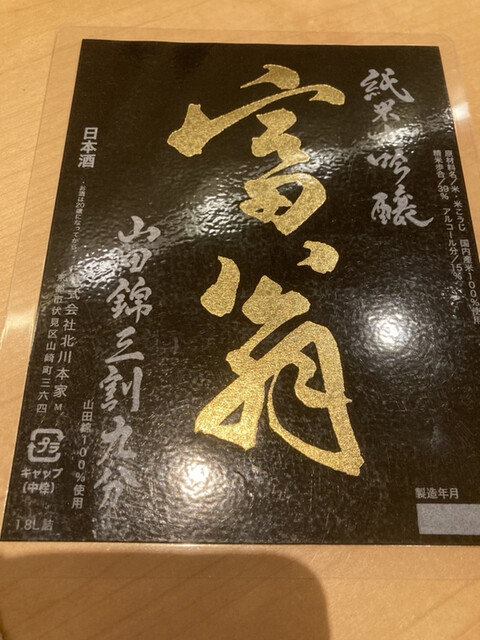 純米吟醸
原材料名/米・米こうじ 国内産米100%使用
精米歩合/39% アルコール分/15%
富翁
山田錦三割九分
山田錦100%使用
日本酒
お酒は20歳になってから
式会社北川本家 M
京都市伏見区山崎町三六四
プラ
キャップ
(中栓)
1.8L 詰
製造年月